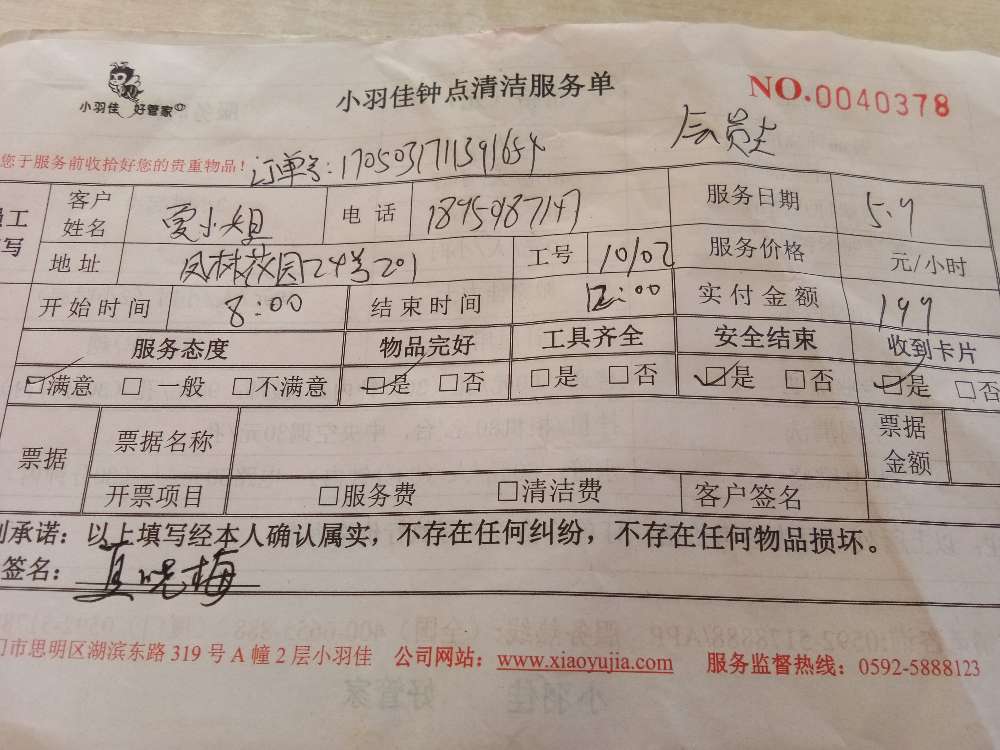 小羽佳 好管家
小羽佳钟点清洁服务单
NO.0040378
您于服务前收拾好您的贵重物品！订单号:170503171139165
会员
员工 客户姓名 夏小姐 电话 服务日期
写 地址 枫树花园24号201 工号 10102 服务价格 元/小时
开始时间 8:00 结束时间 12:00 实付金额
服务态度 物品完好 工具齐全 安全结束 收到卡片
□满意 □ 一般 □不满意 □是 □否 □是 □否 □是 □否 □是 □否
票据 票据名称 票据金额
开票项目 □服务费 □清洁费 客户签名
承诺：以上填写经本人确认属实，不存在任何纠纷，不存在任何物品损坏。
签名： 夏晓梅
门市思明区湖滨东路 319 号 A 幢 2 层小羽佳 公司网站：www.xiaoyujia.com 服务监督热线：0592-5888123